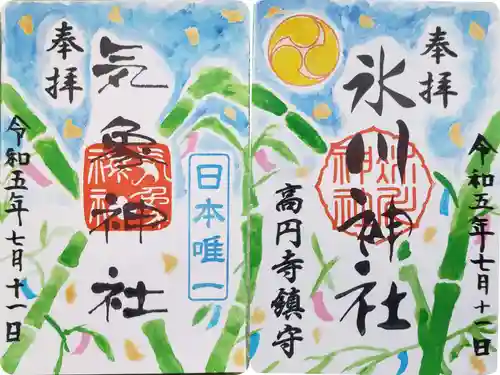 奉拝
氷川神社
高円寺鎮守
令和五年七月十一日
奉拝
気象神社
日本唯一
令和五年七月十一日